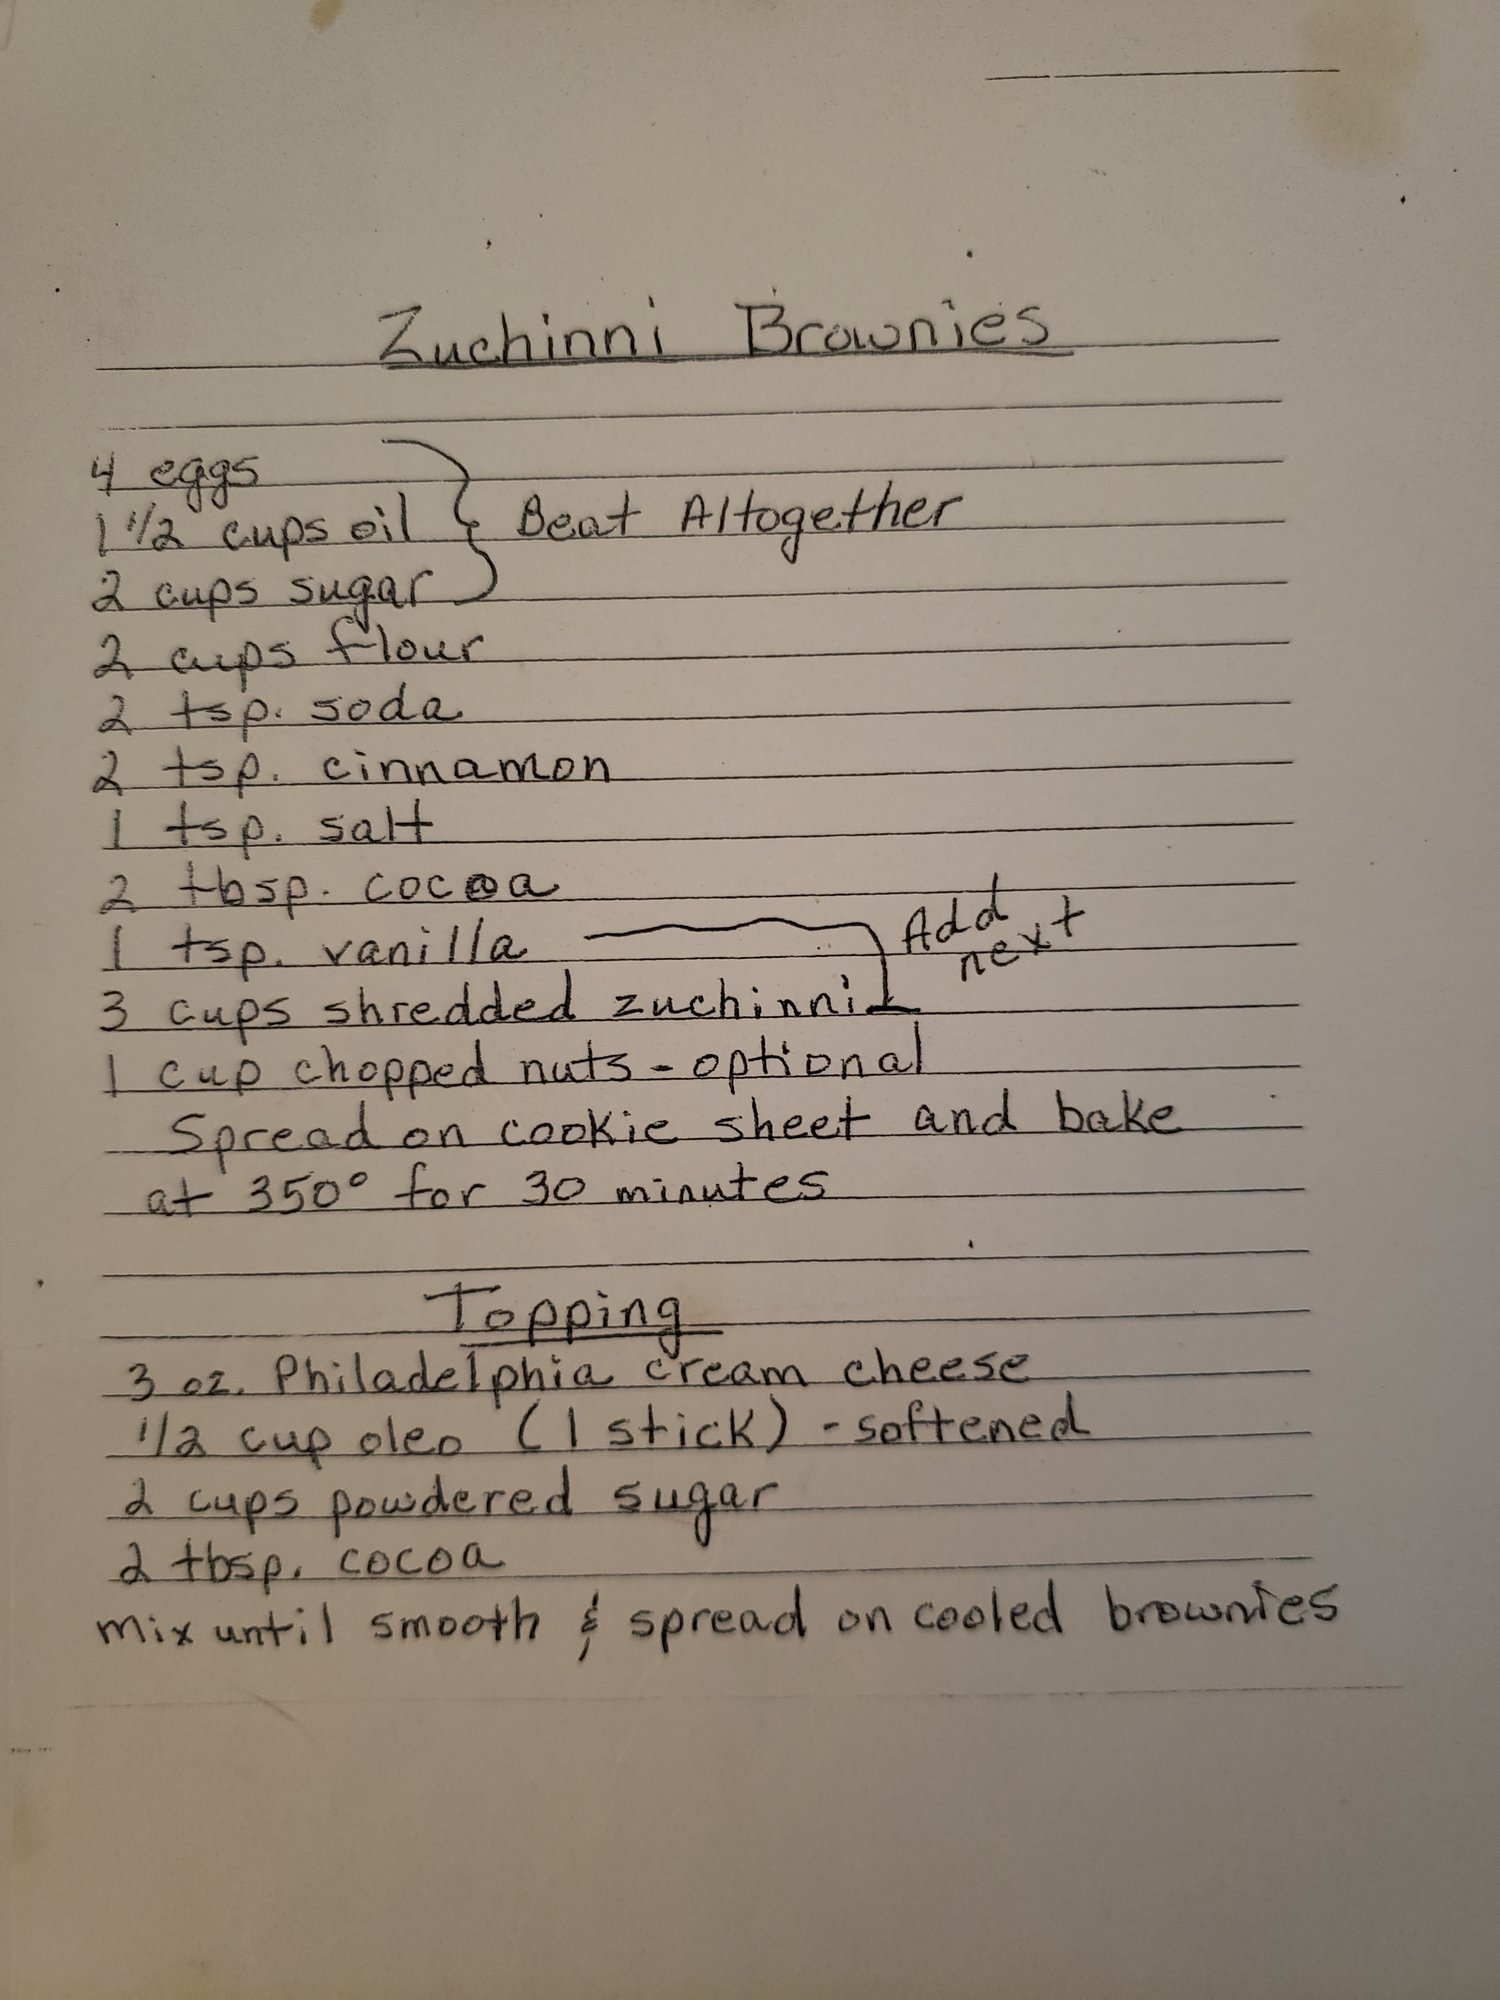 Zuchinni Brownies
4 eggs
1 1/2 cups oil } Beat Altogether
2 cups sugar
2 cups flour
2 tsp. soda
2 tsp. cinnamon
1 tsp. salt
2 tbsp. cocoa
1 tsp. vanilla Add next
3 cups shredded zuchinni
1 cup chopped nuts - optional
Spread on cookie sheet and bake
at 350° for 30 minutes
Topping
3 oz. Philadelphia cream cheese
1/2 cup oleo (1 stick) - softened
2 cups powdered sugar
2 tbsp. cocoa
mix until smooth & spread on cooled brownies